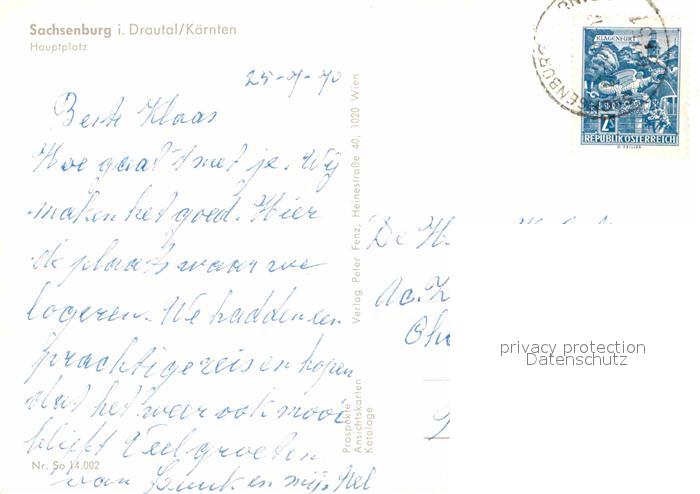 Sachsenburg i. Drautal/Kärnten
Hauptplatz
25-7-70
Beste Klaas
Hoe gaat 't met je. Wij
maken het goed. Hier
de plaats waar we
logeren. We hadden een
prachtige reis en hopen
dat het weer ook mooi
blijft Veel groeten
van en mij.
Nr. So 14.002
Verlag Peter Fenz, Heinestraße 40, 1020 Wien
Prospekte
Ansichtskarten
Kataloge
KLAGENFURT
2S
REPUBLIK ÖSTERREICH
De H.
privacy protection
Datenschutz